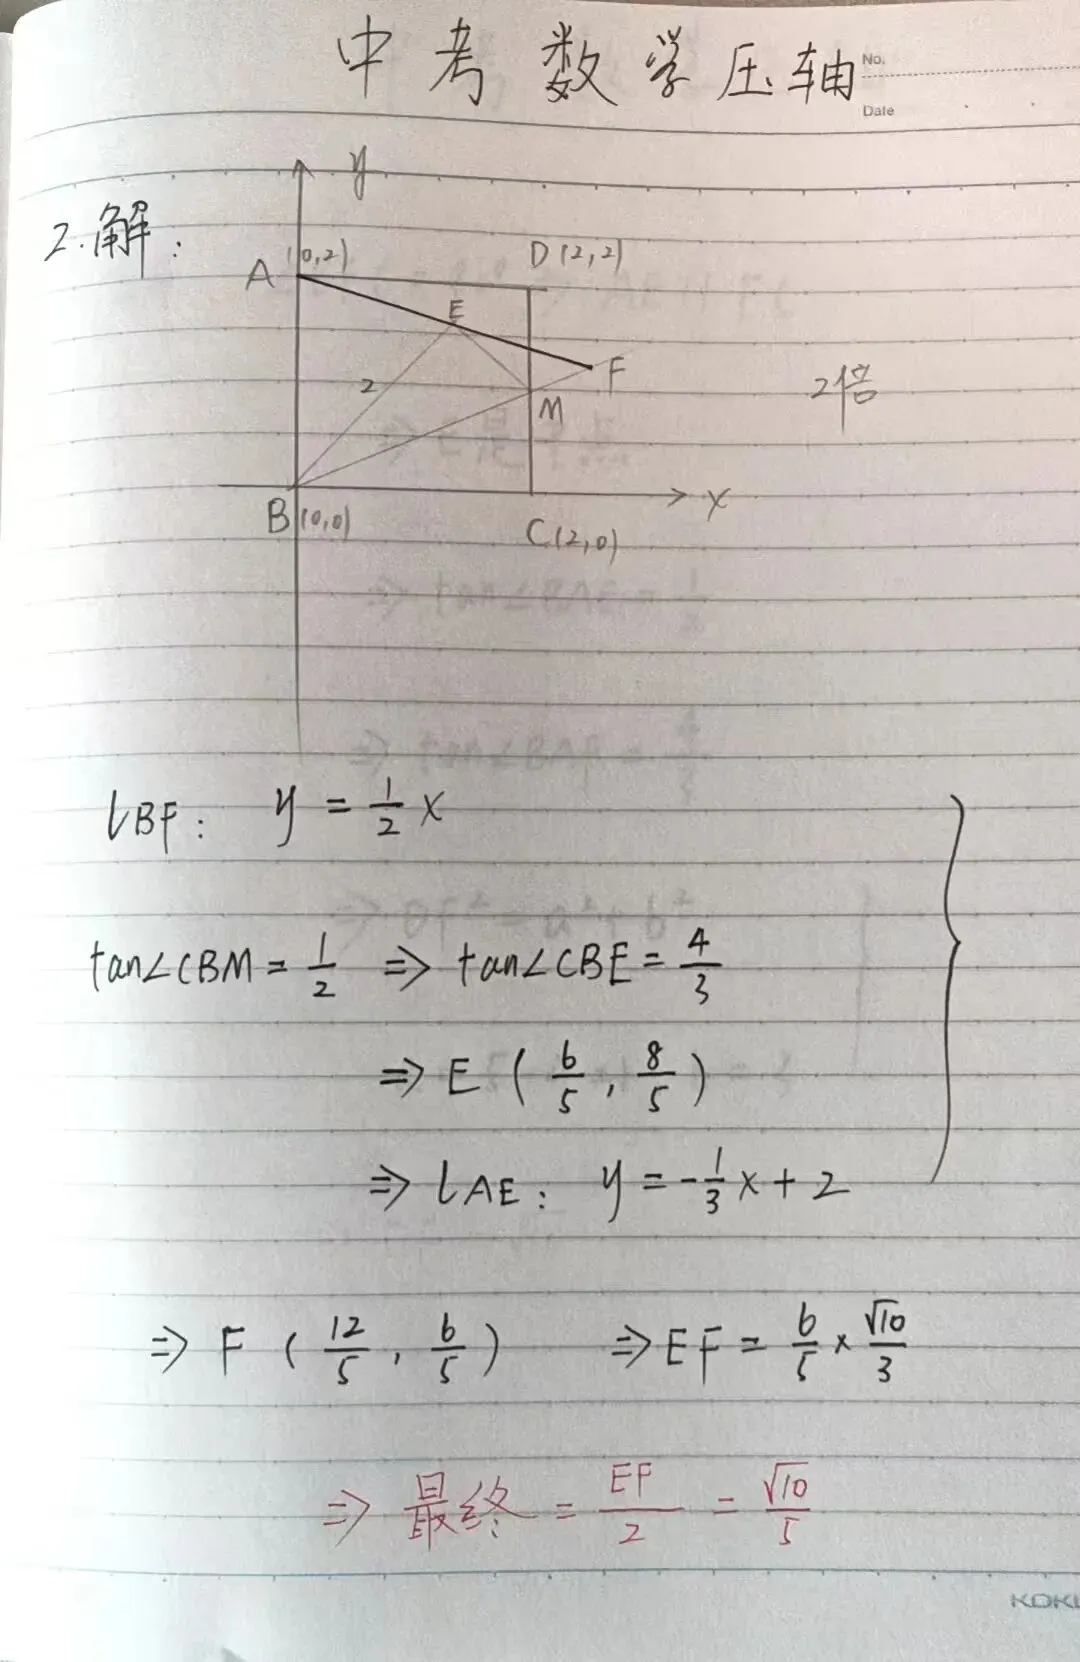 中考数学压轴
No.
Date
y
2.解:
A (0,2)
D(2,2)
E
F
2
M
2倍
B(0,0)
x
C(2,0)
lBF: y = 1/2 x
tan∠CBM = 1/2 ⇒ tan∠CBE = 4/3
⇒ E (6/5, 8/5)
⇒ lAE: y = -1/3 x + 2
⇒ F (12/5, 6/5) ⇒ EF = 6/5 × √10/3
⇒ 最终 = EF/2 = √10/5